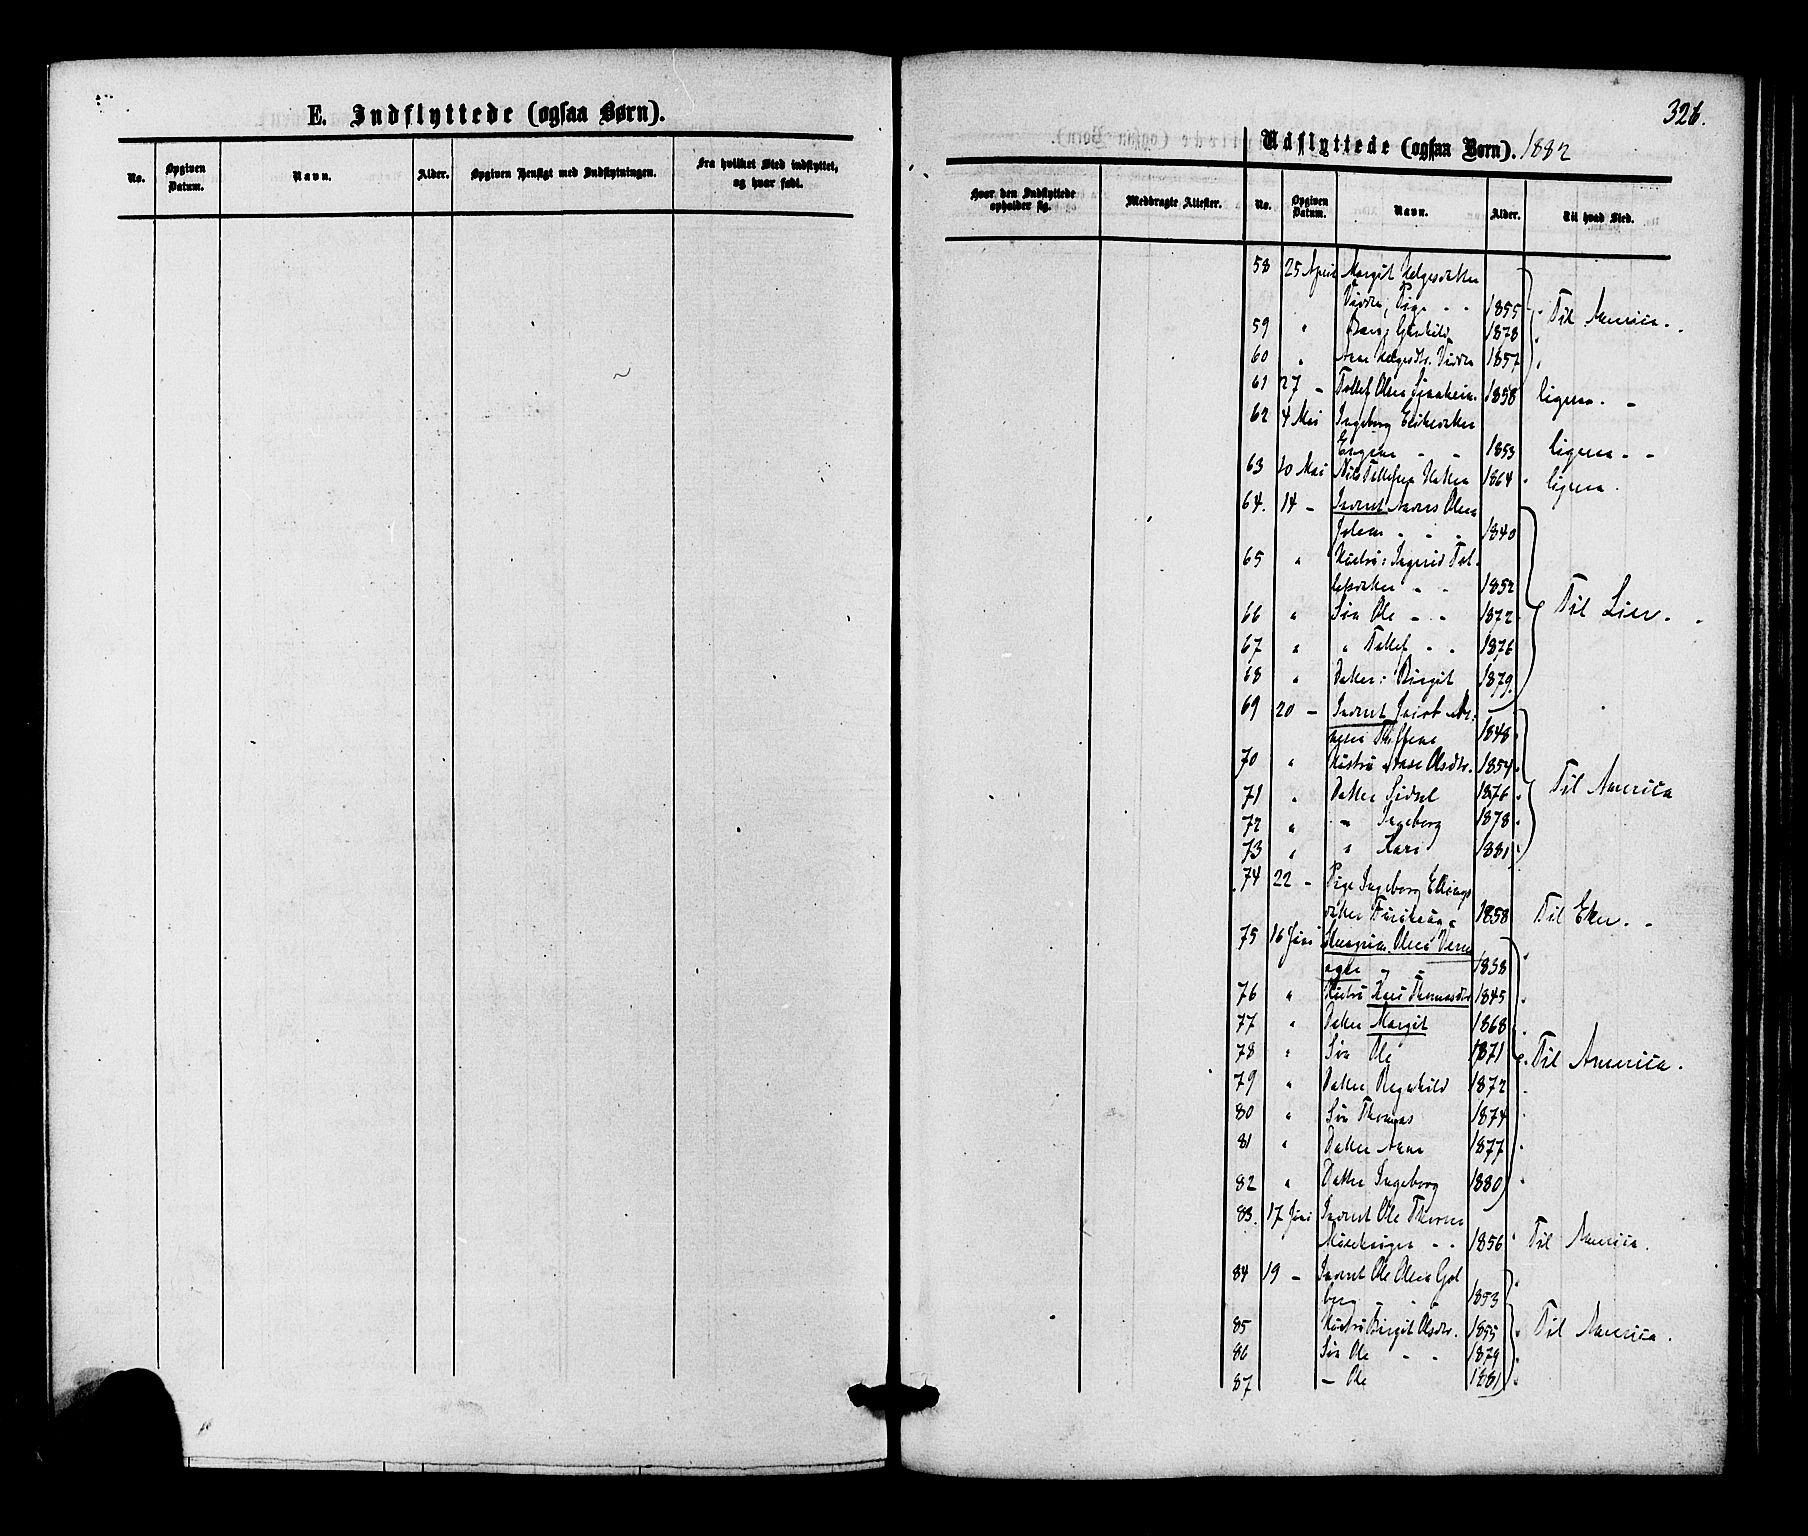 E. Indflyttede (ogsaa Børn).
No.
Opgiven Datum.
Navn.
Alder.
Opgiven Hensigt med Indflytningen.
Fra hvilket Sted indflyttet, og hvor født.
326.
Udflyttede (ogsaa Børn). 1882
Hvor den Indflyttede opholder sig.
Medbragte Attester.
No.
Opgiven Datum.
Navn.
Alder.
Til hvad Sted.
58 25 April Margit Helgesdatter
Pige - - 1855 Til America.
59 " Gunhild 1878
60 " Helgesdtr. 1857
61 27 - Tollef Olsen 1858 ligesaa. -
62 4 Mai Ingeborg
1853 ligesaa - -
63 10 Mai Nils Tollefsen 1864 ligesaa.
64. 14 - Indrst Olsen
- - - 1840
65 " Hustru: Ingrid Tol-
lefsdatter - - 1852
66 " Søn Ole - - 1872 Til Lier.
67 " " Tollef - - 1876
68 " Datter: Birgit 1879.
69 20 - Indrst
1848
70 " Hustru Olsdtr. 1854
71 " Datter Sidsel 1876 Til America
72 " - Ingeborg 1878
73 " " Kari 1881
74 22 - Pige Ingeborg Ellings
datter 1858 Til Eker. -
75 16 Juni Olsen
1838
76 " Hustru Kari Thomasdtr 1845
77 " Datter Margit 1868
78 " Søn Ole 1871 Til America.
79 " Datter Ragnhild 1872
80 " Søn Thomas 1874
81 " Datter Anne 1877
82 " Datter Ingeborg 1880
83. 17 Juni Indrst Ole
- - 1856 Til America.
84 19 - Indrst Ole Olsen Gol
berg - - 1853
85 Hustru Birgit Olsdtr. 1855 Til America.
86 Søn Ole - - 1879
87 - Ole 1881